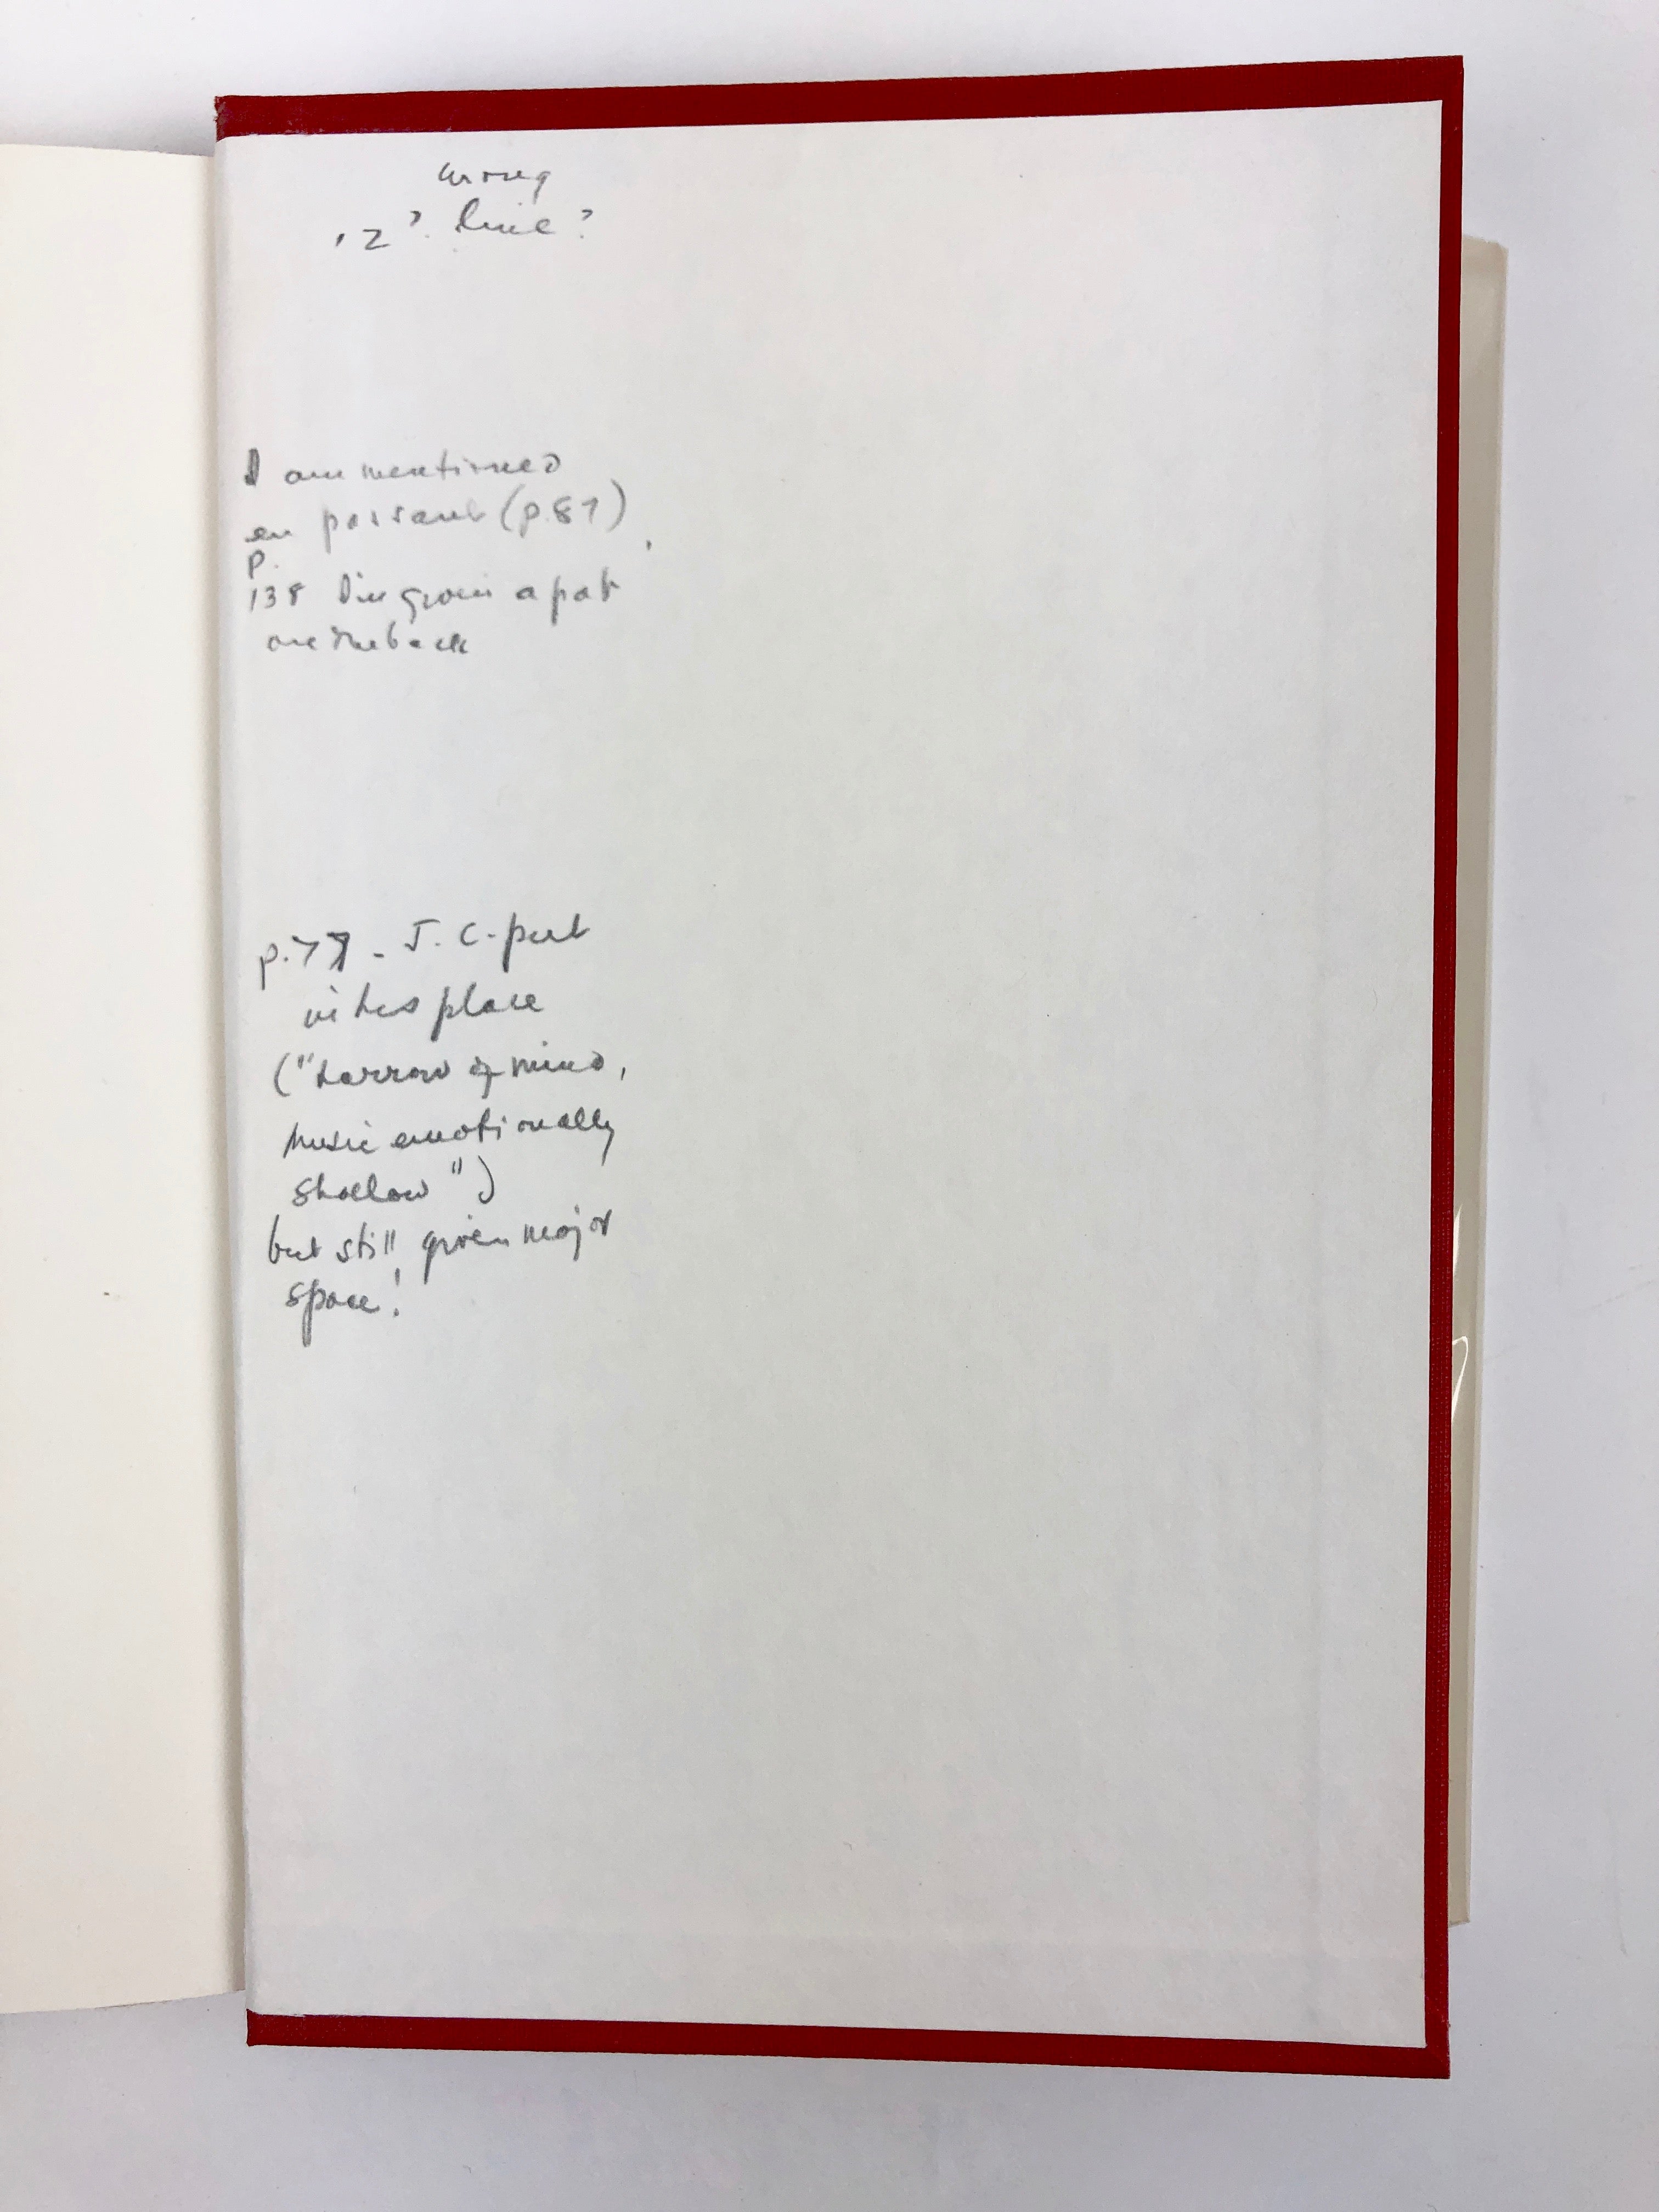 wrong
12? line?
I am mentioned
en passant (p.81)
p.
138 I'm given a pat
on the back
p.77 - J.C. put
in his place
("narrow of mind,
music emotionally
shallow")
but still given major
space!